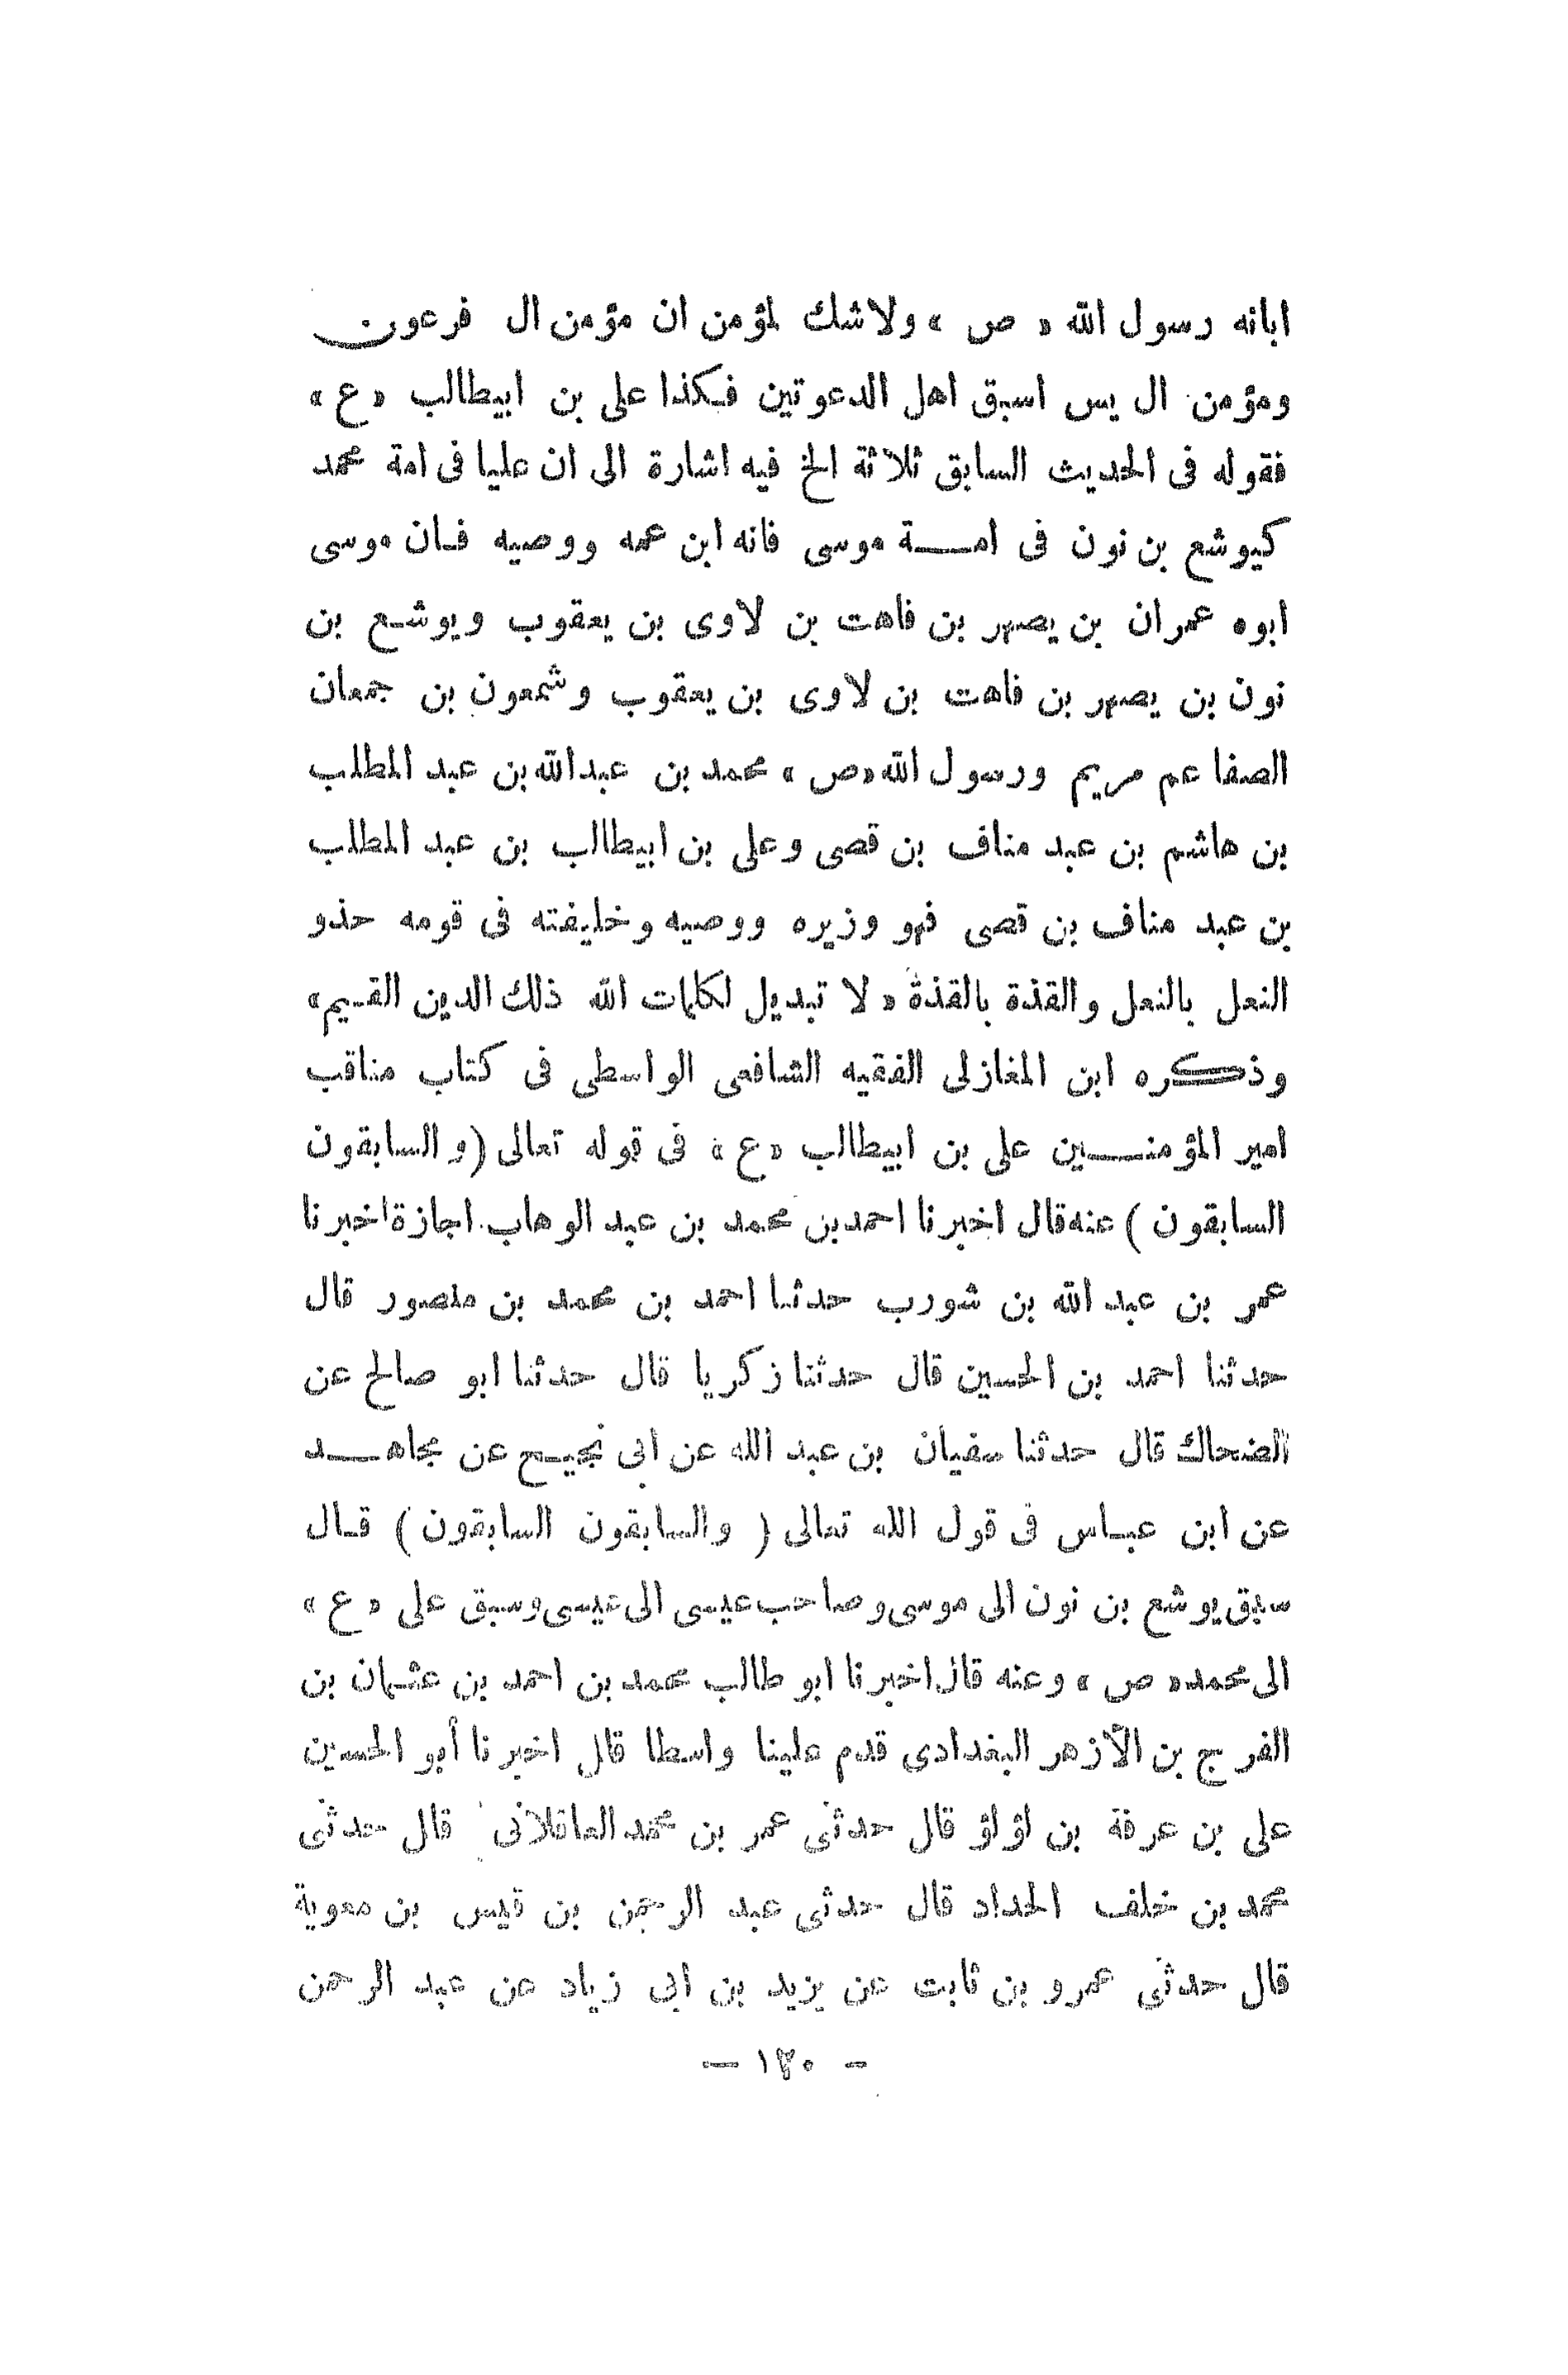 ابانه رسول الله « ص » ولاشك لمؤمن ان مؤمن ال فرعون
ومؤمن ال يس اسبق اهل الدعوتين فكذا على بن ابيطالب « ع »
فقوله فى الحديث السابق ثلاثة الخ فيه اشارة الى ان عليا فى امة محمد
كيوشع بن نون فى امـــة موسى فانه ابن عمه ووصيه فان موسى
ابوه عمران بن يصهر بن قاهت بن لاوى بن يعقوب ويوشع بن
نون بن يصهر بن قاهت بن لاوى بن يعقوب وشمعون بن جمعان
الصفا عم مريم ورسول الله «ص» محمد بن عبدالله بن عبد المطلب
بن هاشم بن عبد مناف بن قصى وعلى بن ابيطالب بن عبد المطلب
بن عبد مناف بن قصى فهو وزيره ووصيه وخليفته فى قومه حذو
النعل بالنعل والقذة بالقذة « لا تبديل لكلمات الله ذلك الدين القيم»
وذكره ابن المغازلى الفقيه الشافعى الواسطى فى كتاب مناقب
امير المؤمنـــين على بن ابيطالب «ع» فى قوله تعالى (والسابقون
السابقون ) عنه قال اخبرنا احمد بن محمد بن عبد الوهاب اجازة اخبرنا
عمر بن عبد الله بن شورب حدثنا احمد بن محمد بن منصور قال
حدثنا احمد بن الحسين قال حدثنا زكريا قال حدثنا ابو صالح عن
الضحاك قال حدثنا سفيان بن عبد الله عن ابى نجيح عن مجاهـــد
عن ابن عباس فى قول الله تعالى ( والسابقون السابقون ) قال
سبق يوشع بن نون الى موسى وصاحب عيسى الى عيسى وسبق على « ع »
الى محمد« ص » وعنه قال اخبرنا ابو طالب محمد بن احمد بن عثمان بن
الفرج بن الأزهر البغدادى قدم علينا واسطا قال اخبرنا أبو الحسين
على بن عرفة بن لؤلؤ قال حدثى عمر بن محمد العاقلانى قال حدثى
محمد بن خلف الحداد قال حدثى عبد الرحمن بن قيس بن معوية
قال حدثى عمرو بن ثابت عن يزيد بن ابى زياد عن عبد الرحمن